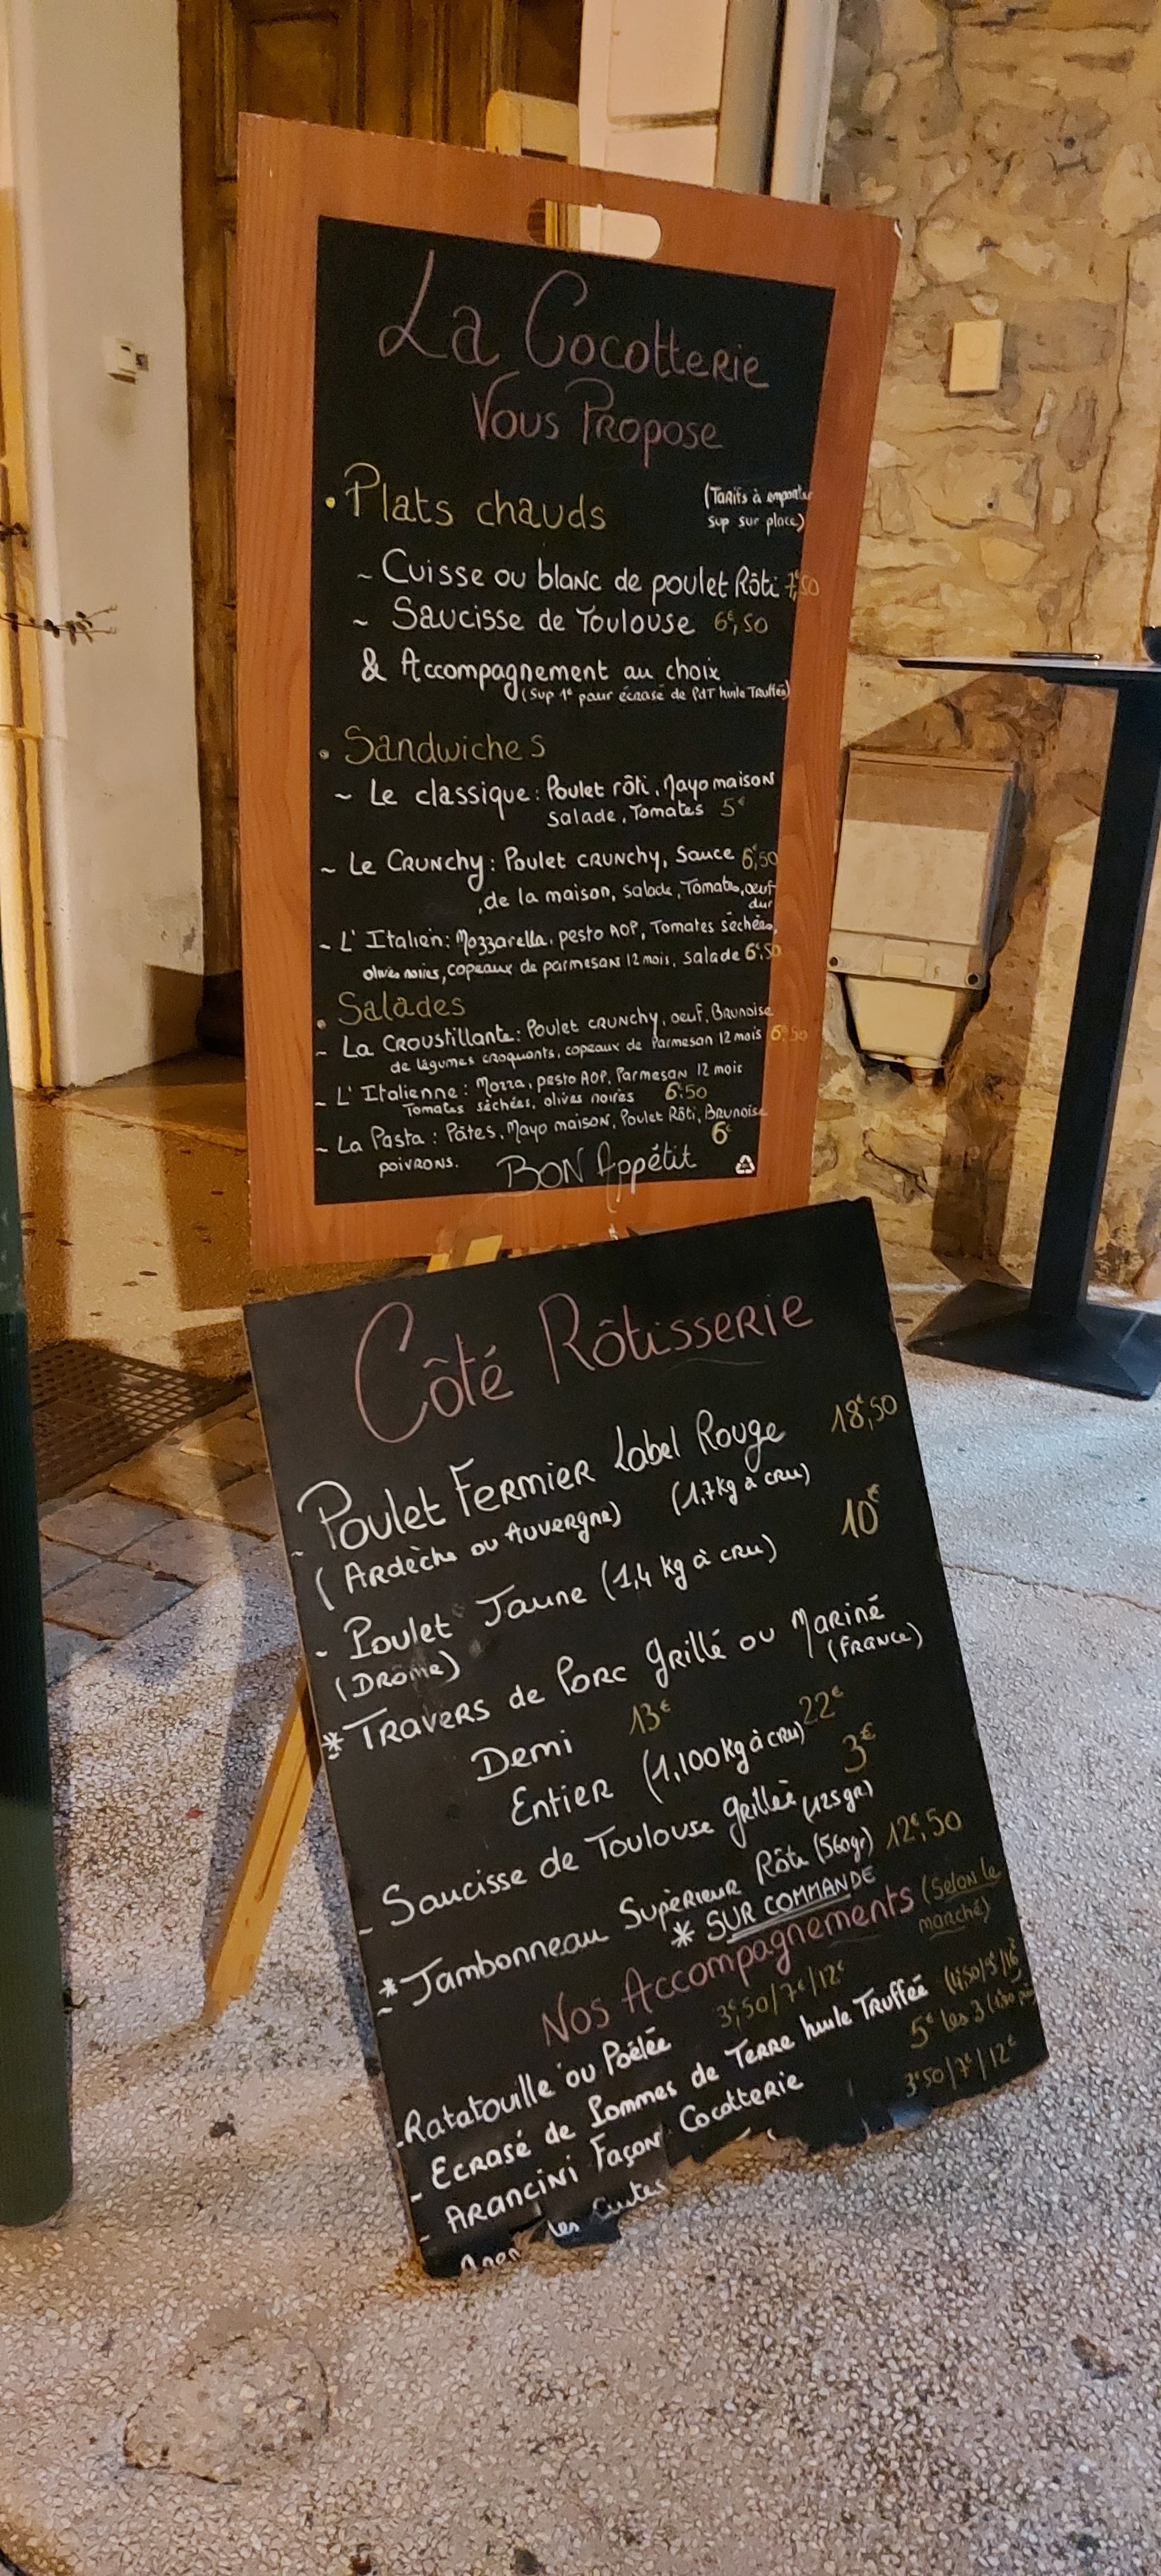 La Cocotterie
Vous Propose
• Plats chauds
(Tarifs à emporter
sup sur place)
~ Cuisse ou blanc de poulet Rôti 7€,50
~ Saucisse de Toulouse 6€,50
& Accompagnement au choix
(sup 1€ pour écrasé de PdT huile Truffée)
• Sandwiches
~ Le classique : Poulet rôti, Mayo maison
salade, Tomates 5€
~ Le Crunchy : Poulet crunchy, Sauce 6€,50
de la maison, salade, Tomates, oeuf
dur
~ L'Italien : Mozzarella, pesto AOP, Tomates séchées,
olives noires, copeaux de parmesan 12 mois, salade 6€,50
• Salades
~ La Croustillante : Poulet crunchy, oeuf, Brunoise
de légumes croquants, copeaux de Parmesan 12 mois 6€,50
~ L'Italienne : Mozza, pesto AOP, Parmesan 12 mois
Tomates séchées, olives noires 6€50
~ La Pasta : Pâtes, Mayo maison, Poulet Rôti, Brunoise
poivrons. 6€
Bon Appétit
Côté Rôtisserie
- Poulet Fermier Label Rouge 18€,50
(Ardèche ou Auvergne) (1,7kg à cru)
- Poulet Jaune (1,4 kg à cru) 10€
(Drôme)
* Travers de Porc Grillé ou Mariné
(France)
Demi 13€
Entier (1,100Kg à cru) 22€
- Saucisse de Toulouse Grillée (125gr) 3€
* Jambonneau Supérieur Rôti (560gr) 12€,50
* SUR COMMANDE
Nos Accompagnements (Selon le
marché)
- Ratatouille ou Poêlée 3€,50/7€/12€
- Ecrasé de Pommes de Terre huile Truffée (4,50/9€/16€
- Arancini Façon Cocotterie 5€ les 3
les 3€50/7€/12€